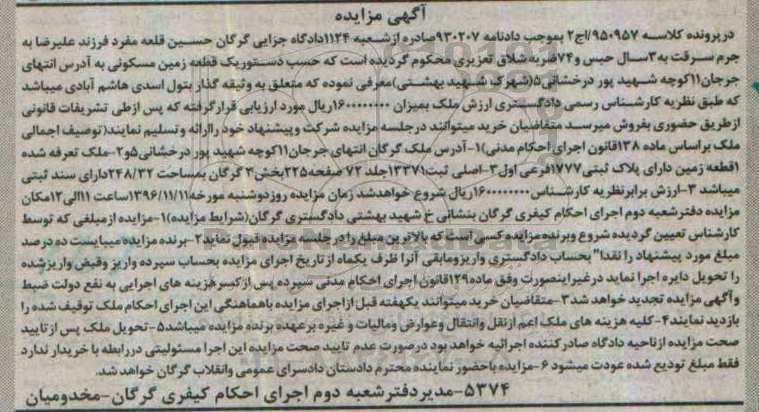 آگهی مزایده
درپرونده کلاسه ۹۵۰۹۵۷/اج۲ بموجب دادنامه ۹۳۰۲۰۷صادره ازشعبه ۱۱۲۴دادگاه جزایی گرگان حسین قلعه مفرد فرزند علیرضا به
جرم سرقت به۳سال حبس و۷۴ضربه شلاق تعزیری محکوم گردیده است که حسب دستوریک قطعه زمین مسکونی به آدرس انتهای
جرجان۱۱کوچه شهید پور درخشانی۵(شهرک شهید بهشتی)معرفی نموده که متعلق به وثیقه گذار بتول اسدی هاشم آبادی میباشد
که طبق نظریه کارشناس رسمی دادگستری ارزش ملک بمیزان ۱۶۰۰۰۰۰۰۰۰ریال مورد ارزیابی قرارگرفته که پس ازطی تشریفات قانونی
ازطریق حضوری بفروش میرسد متقاضیان خرید میتوانند درجلسه مزایده شرکت وپیشنهاد خود راارائه وتسلیم نمایند(توصیف اجمالی
ملک براساس ماده ۱۳۸قانون اجرای احکام مدنی)۱-آدرس ملک گرگان انتهای جرجان۱۱کوچه شهید پور درخشانی۵و۲-ملک تعرفه شده
۱قطعه زمین دارای پلاک ثبتی۱۷۷۷فرعی اول۳-اصلی ثبت۱۳۳۷۱جلد ۷۲ صفحه۲۲۵بخش۳ گرگان بمساحت ۲۴۸/۳۲دارای سند ثبتی
میباشد ۳-ارزش برابرنظریه کارشناس۱۶۰۰۰۰۰۰۰۰ریال شروع خواهدشد زمان مزایده روزدوشنبه مورخه۱۳۹۶/۱۱/۱۱ساعت ۱۱الی۱۲مکان
مزایده دفترشعبه دوم اجرای احکام کیفری گرگان بنشانی خ شهید بهشتی دادگستری گرگان(شرایط مزایده)۱-مزایده ازمبلغی که توسط
کارشناس تعیین گردیده شروع وبرنده مزایده کسی است که بالاترین مبلغ رادرجلسه مزایده قبول نماید۲-برنده مزایده میبایست ده درصد
مبلغ مورد پیشنهاد را نقدا"بحساب دادگستری واریزومابقی آنرا ظرف یکماه از تاریخ اجرای مزایده بحساب سپرده واریز وقبض واریزشده
را تحویل دایره اجرا نماید درغیراینصورت وفق ماده۱۲۹قانون اجرای احکام مدنی سپرده پس ازکسرهزینه های اجرایی به نفع دولت ضبط
وآگهی مزایده تجدید خواهد شد۳-متقاضیان خرید میتوانند یکهفته قبل ازاجرای مزایده باهماهنگی این اجرای احکام ملک توقیف شده را
بازدید نمایند۴-کلیه هزینه های ملک اعم ازنقل وانتقال وعوارض ومالیات و غیره برعهده برنده مزایده میباشد۵-تحویل ملک پس ازتایید
صحت مزایده ازناحیه دادگاه صادرکننده اجرائیه خواهد بود درصورت عدم تایید صحت مزایده این اجرا مسئولیتی دررابطه با خریدار ندارد
فقط مبلغ تودیع شده عودت میشود ۶-مزایده باحضور نماینده محترم دادستان دادسرای عمومی وانقلاب گرگان خواهد شد.
۵۳۷۴-مدیردفترشعبه دوم اجرای احکام کیفری گرگان-مخدومیان